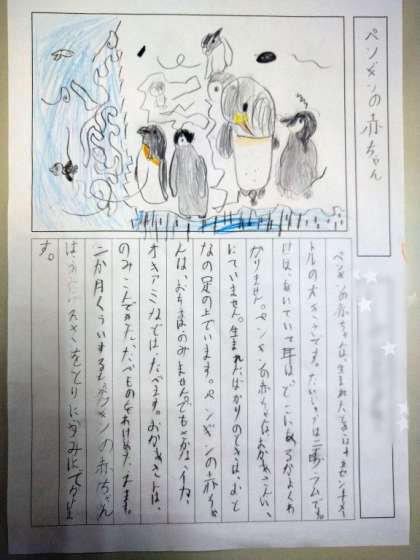 ペンギンの赤ちゃん
ペンギンの赤ちゃんは、生まれたときは十五センチメー
トルの大きさです。たいじゅうは三百グラムです。
目は、あいていて耳は、どこにあるかよくわ
かりません。ペンギンの赤ちゃんはおかあさんに、
にていません。生まれたばかりのときは、おと
なの足の上でいます。ペンギンの赤ちゃ
んは、おちちはのみませんでもさかな、イカ、
オキアミなどは、たべます。おかあさんは、
のみこんできた、たべものをあげます。
二か月くらいするとペンギンの赤ちゃん
は、とりに
す。